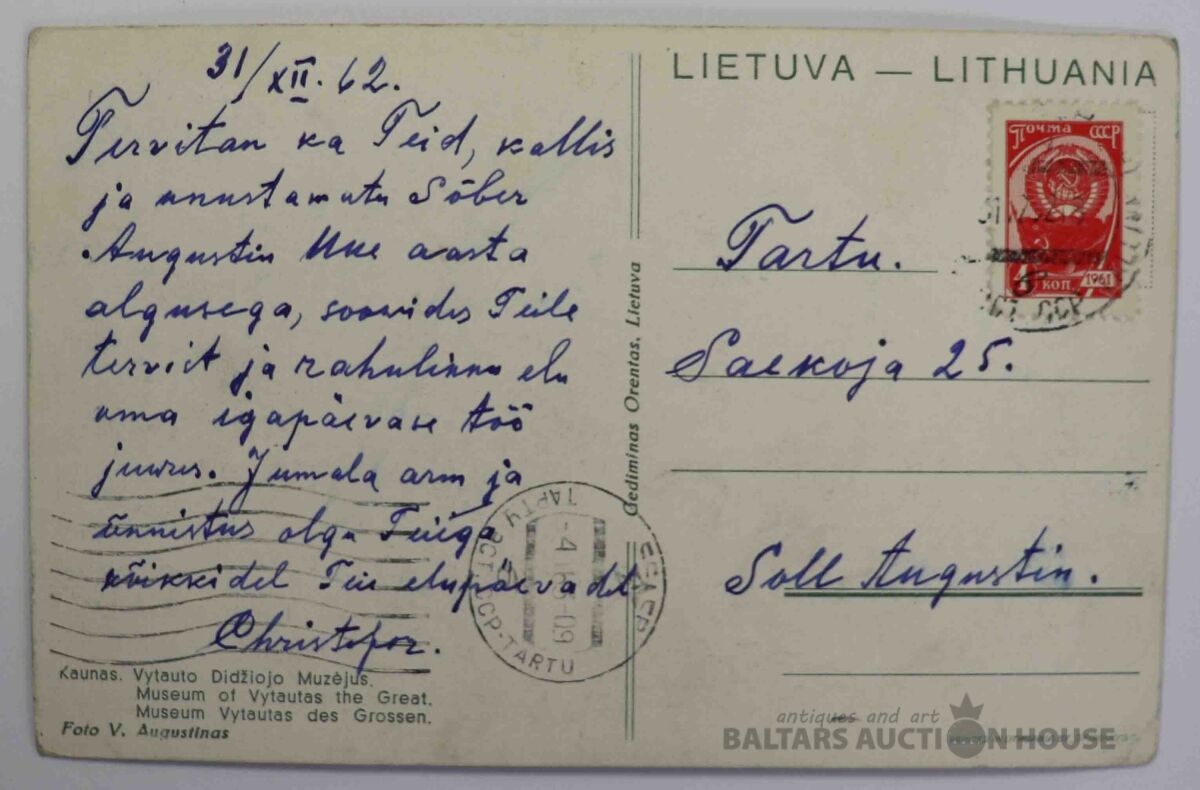 31/XII. 62.
Tervitan ka Teid, kallis
ja unustamatu Sõber
Augustin Uue aasta
algusega, soovides Teile
tervist ja rahulikku elu
oma igapäevase töö
juures. Jumala arm ja
õnnistus olgu Teiega
kõikidel Teie elupäevadel
Christofor.
Kaunas. Vytauto Didžiojo Muzėjus.
Museum of Vytautas the Great.
Museum Vytautas des Grossen.
Foto V. Augustinas
Gediminas Orentas, Lietuva
LIETUVA — LITHUANIA
Почта СССР
4 коп. 1961
Tartu.
Saekoja 25.
Soll Augustin.
ТАРТУ ЭСТ. ССР-TARTU
antiques and art
BALTARS AUCTION HOUSE